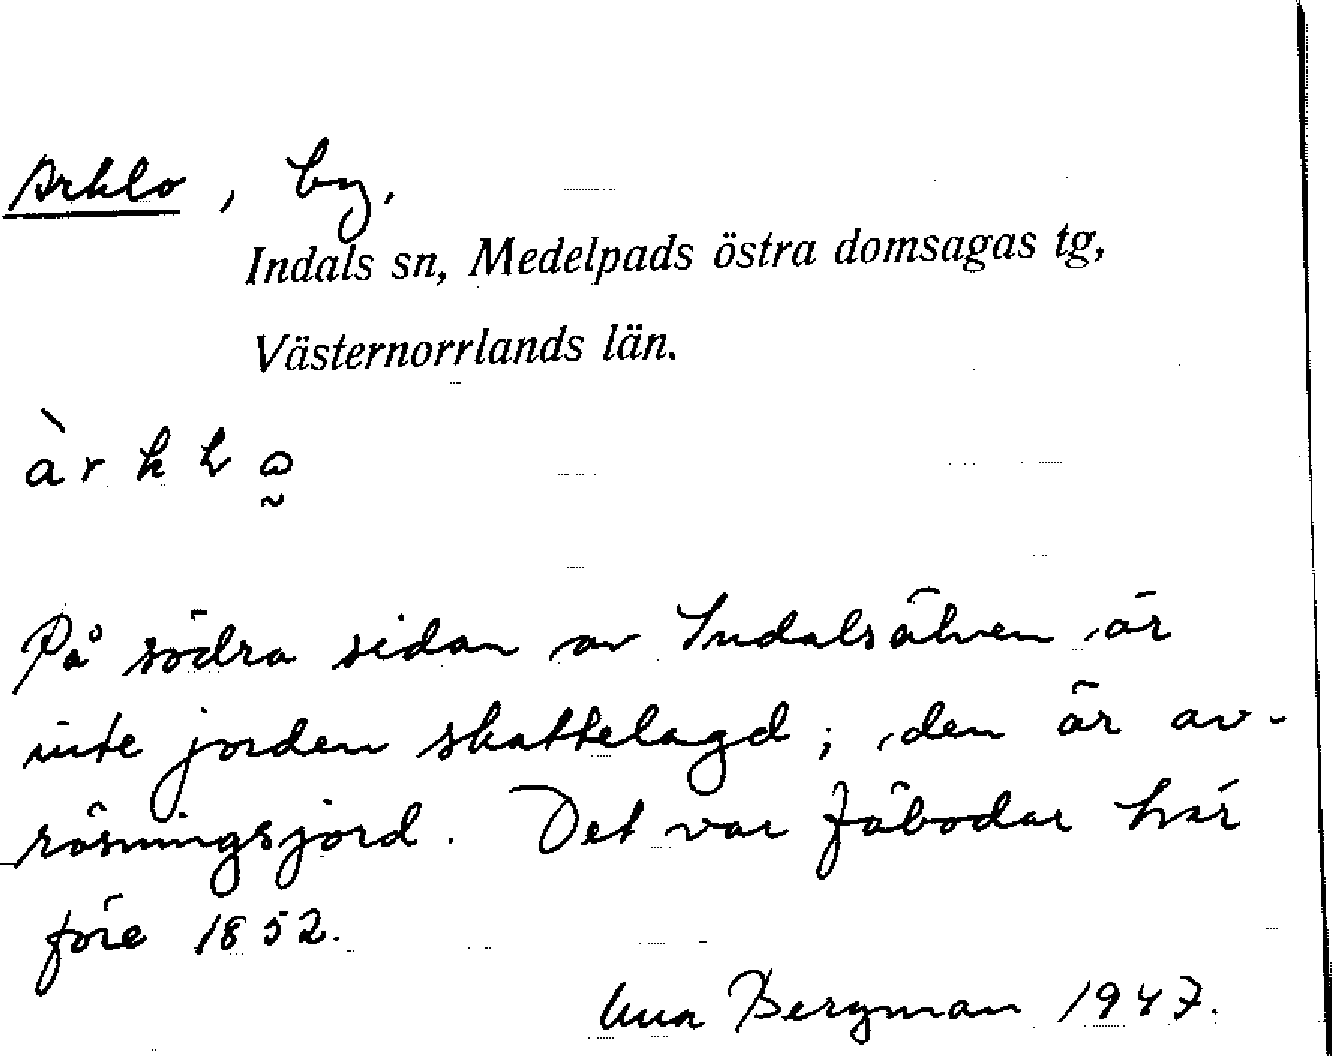 Arklo, by.
Indals sn, Medelpads östra domsagas tg,
Västernorrlands län.
àrklo
På södra sidan av Indalsälven är
inte jorden skattelagd; den är av-
rösningsjord. Det var fäbodar här
före 1852.
Bergman 1947.